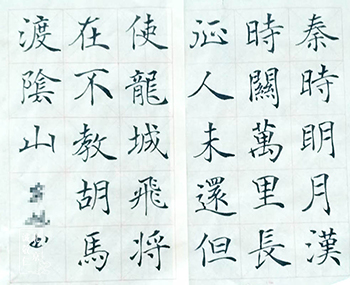 秦時明月漢
時關萬里長
征人未還但
使龍城飛将
在不教胡馬
渡陰山